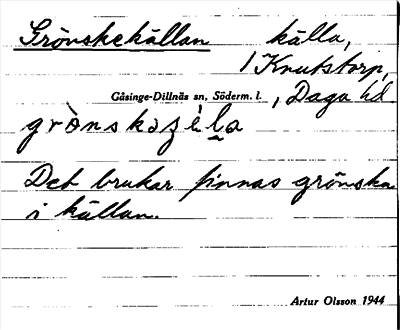 Grönskekällan källa,
1 Knutstorp,
Gåsinge-Dillnäs sn, Söderm. l., Daga hd
grò̀nskəʒèla
Det brukar finnas grönska
i källan.
Artur Olsson 1944